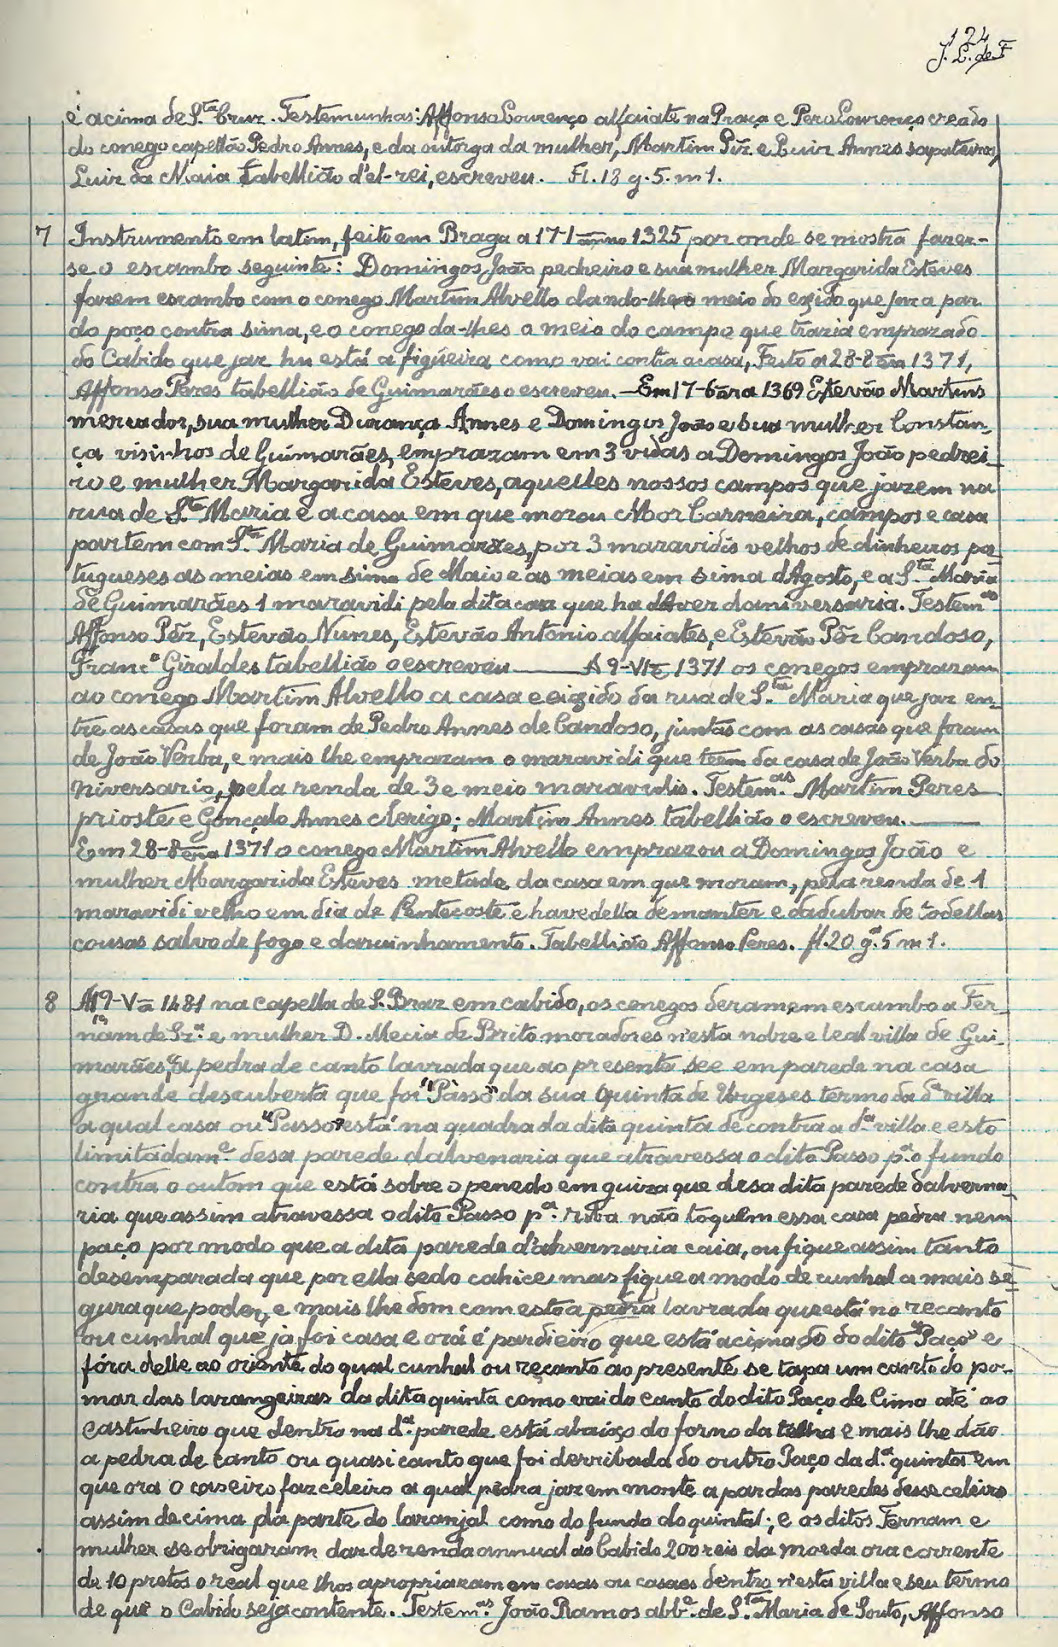 124
J. L. de F
é acima de S.ta Cruz. Testemunhas: Affonso Lourenço alfaiate na Praça e Pero Lourenço creado
do conego capellão Pedro Annes, e da outorga da mulher, Martim Piz e Luiz Annes sapateiros,
Luiz da Maia tabellião d'el-rei, escreveu. Fl. 18 g. 5. m 1.
7 Instrumento em latim, feito em Braga a 17-1 anno 1325 por onde se mostra fazer-
se o escambo seguinte: Domingos João pedreiro e sua mulher Margarida Esteves
fazem escambo com o conego Martim Alvello dando-lhe o meio do exido que jaz a par
do poço contra sima, e o conego da-lhes o meio do campo que trazia emprazado
do Cabido que jaz hu está a figueira como vai contra a casa, Feito a 28-8 era 1371,
Affonso Peres tabellião de Guimarães o escreveu. — Em 17-6 era 1369 Estevão Martins
mercador, sua mulher Durança Annes e Domingos João e sua mulher Constan-
ça visinhos de Guimarães, emprazam em 3 vidas a Domingos João pedrei-
ro e mulher Margarida Esteves, aquelles nossos campos que jazem na
rua de S.ta Maria e a casa em que morou Mor Carneira, campos e casa
partem com S.ta Maria de Guimarães, por 3 maravidis velhos de dinheiros por-
tugueses as meias em sima de Maio e as meias em sima d'Agosto, e a S.ta Maria
de Guimarães 1 maravidi pela dita casa que ha d'Aver d'aniversaria. Testem.as
Affonso Pêz, Estevão Nunes, Estevão Antonio alfaiates, e Estevão Pêz Candoso,
Franc.o Giraldes tabellião o escreveu —— A 9-VI-E 1371 os conegos emprazam
ao conego Martim Alvello a casa e exido da rua de S.ta Maria que jaz en-
tre as casas que foram de Pedro Annes de Candoso, juntas com as casas que foram
de João Verba, e mais lhe emprazam o maravidi que teem da casa de João Verba do
niversario, pela renda de 3 e meio maravidis. Testem.as Martim Peres
prioste e Gonçalo Annes clerigo; Martim Annes tabellião o escreveu. ——
Em 28-8 era 1371 o conego Martim Alvello emprazou a Domingos João e
mulher Margarida Esteves metade da casa em que moram, pela renda de 1
maravidi velho em dia de Pentecoste e havedella de manter e d'adubar de todellas
cousas salvo de fogo e daruinhamento. Tabellião Affonso Peres. fl. 20 g.a 5 m 1.
8 A 19-V-a 1481 na capella de S. Braz em cabido, os conegos deram em escambo a Fer-
nam de Sz.a e mulher D. Mecia de Brito moradores n'esta nobre e leal villa de Gui-
marães, a pedra de canto lavrada que ao presente see em parede na casa
grande descuberta que foi "Passo" da sua Quinta de Urgeses termo da d.a villa
a qual casa ou "Passo" está na quadra da dita quinta de contra a d.a villa e esto
limitadam.e desa parede d'alvenaria que atravessa o dito Passo p.a o fundo
contra o outom que está sobre o penedo em guiza que desa dita parede d'alvena-
ria que assim atravessa o dito Passo p.a riba não toquem essa casa pedra nem
paço por modo que a dita parede d'alvernaria caia, ou fique assim tanto
desemparada que por ella cedo cahice mas fique a modo de cunhal a mais se-
gura que poder, e mais lhe dom com esto a pedra lavrada que está no recanto
ou cunhal que já foi casa e orá é pardieiro que está acima do dito "Paço" e
fóra delle ao oriente do qual cunhal ou reçanto ao presente se tapa um canto do po-
mar das larangeiras da dita quinta como vai do canto do dito Paço de Cima até ao
castinheiro que dentro na d.a parede está abaixo do forno da telha e mais lhe dão
a pedra de canto ou quasi canto que foi derribada do outro Paço da d.a quinta em
que ora o caseiro faz celeiro a qual pedra jaz em monte a par das paredes desse celeiro
assim de cima da parte do laranjal como do fundo do quintal; e os ditos Fernam e
mulher se obrigaram dar de renda annual ao Cabido 200 reis da moeda ora corrente
de 10 pretos o real que lhos apropriaram em cosas ou casaes dentro n'esta villa e seu termo
de que o Cabido seja contente. Testem.as João Ramos abb.e de S.ta Maria de Souto, Affonso